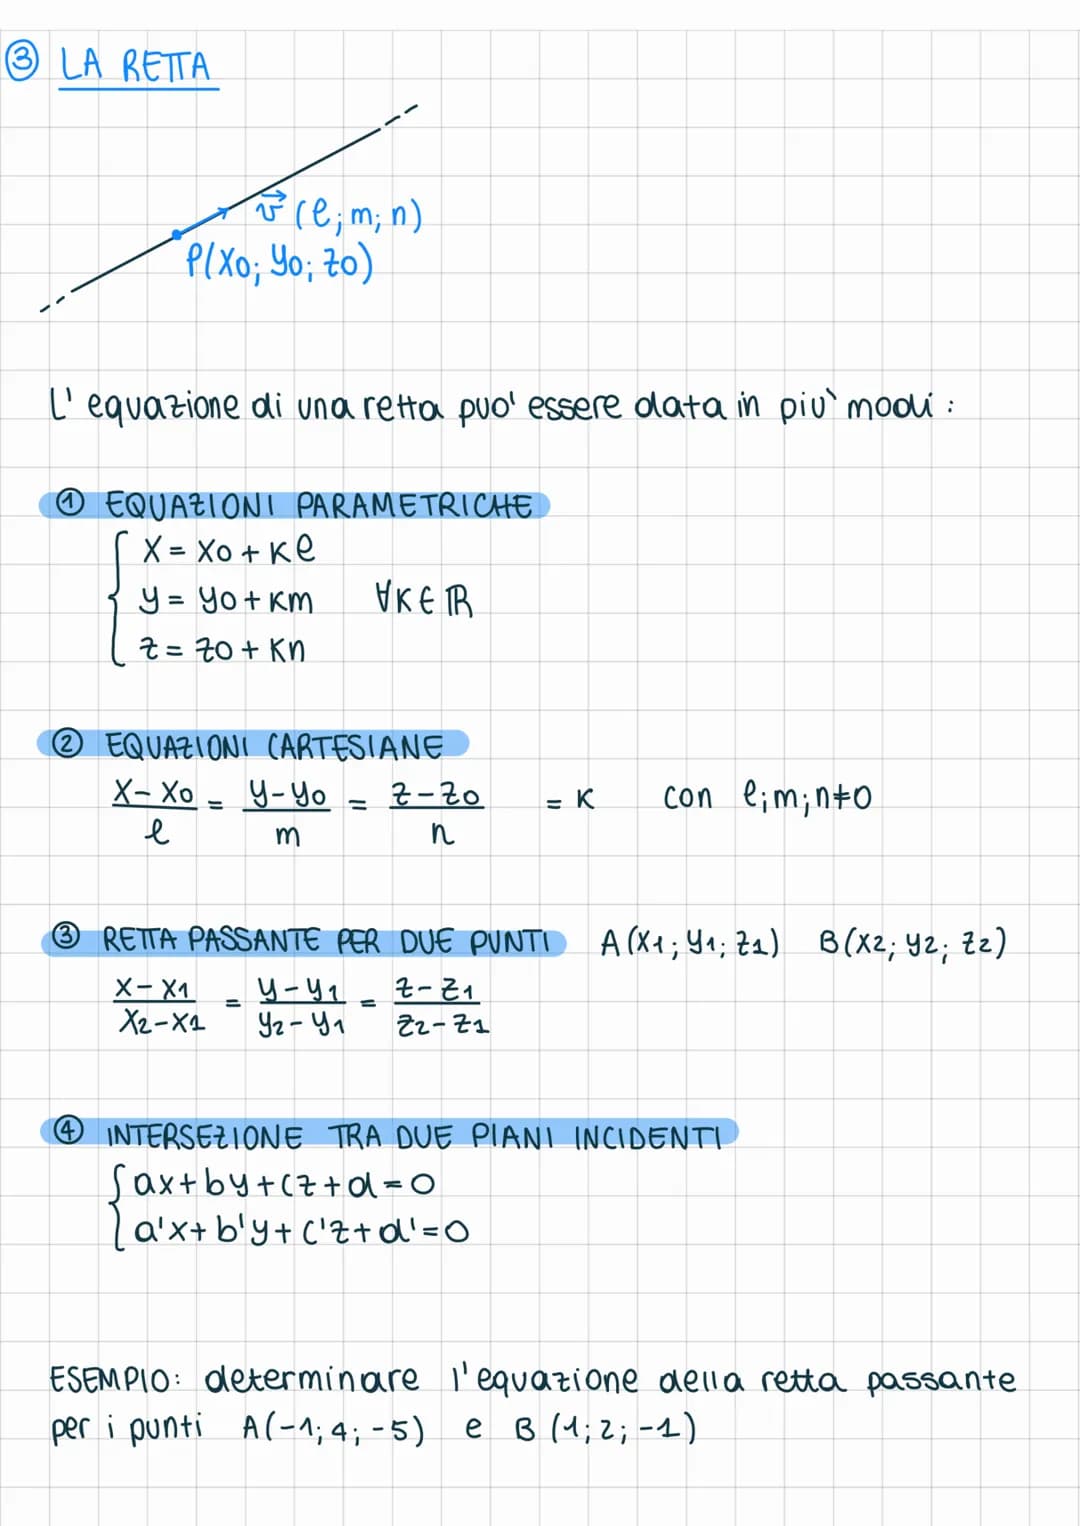 ③ LA RETTA
v⃗ (ℓ; m; n)
P(x0; y0; z0)
L' equazione di una retta puo' essere data in piu` modi :
① EQUAZIONI PARAMETRICHE
x = x0 + kℓ
y = y0 + km ∀k ∈ ℝ
z = z0 + kn
② EQUAZIONI CARTESIANE
(x - x0)/ℓ = (y - y0)/m = (z - z0)/n = k con ℓ; m; n ≠ 0
③ RETTA PASSANTE PER DUE PUNTI A(x1; y1; z1) B(x2; y2; z2)
(x - x1)/(x2 - x1) = (y - y1)/(y2 - y1) = (z - z1)/(z2 - z1)
④ INTERSEZIONE TRA DUE PIANI INCIDENTI
ax + by + cz + d = 0
a'x + b'y + c'z + d' = 0
ESEMPIO: determinare l'equazione della retta passante
per i punti A(-1; 4; -5) e B (1; 2; -1)